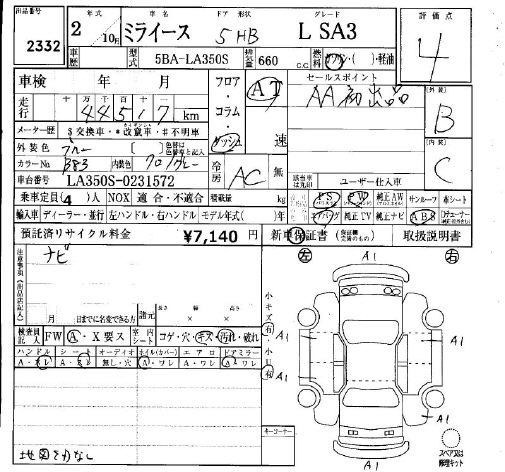 出品番号 2332
年式 2 10月 車名 ミライース ドア 形状 5HB グレード L SA3
評価点 4
車歴 型式 5BA-LA350S 排気量 660 C.C. 燃料 ガソリン・( )・軽油
車検 年 月
フロア・コラム・ダッシュ AT 速
セールスポイント
AA初出品
外装 B
走行 十 万 千 百 十 一
44517 km
メーター歴 $交換車・*改竄車・#不明車
外装色 ブルー
内装 C
カラーNo. B83 内装色 クロ/グレー
冷房 AC 無
ユーザー仕入車
車台番号 LA350S-0231572
乗車定員(4)人 NOX 適合・不適合 積載量 kg
PS PW 純正AW サンルーフ 革シート
輸入車 ディーラー・並行 左ハンドル・右ハンドル モデル年式( )年
エアバッグ 純正TV 純正ナビ ABS
預託済リサイクル料金 ¥7,140 円
新車保証書 取扱説明書
左 A1 右
ナビ
月 日までに名変できる方
諸元 長さ 幅 高さ
× ×
小キズ 有 A1
検査員記入 FW A・X要ス 室内シート コゲ・穴・キズ・汚れ・破れ
ハンドル シート オーディオ ホイル(カバー) エアロ ドアミラー
無し・穴 A・ワレ A・ワレ A・ワレ
小U 有 A1
A1
A1
A1
キーコーナー
地図きかなし
A1
スペア又は修理キット